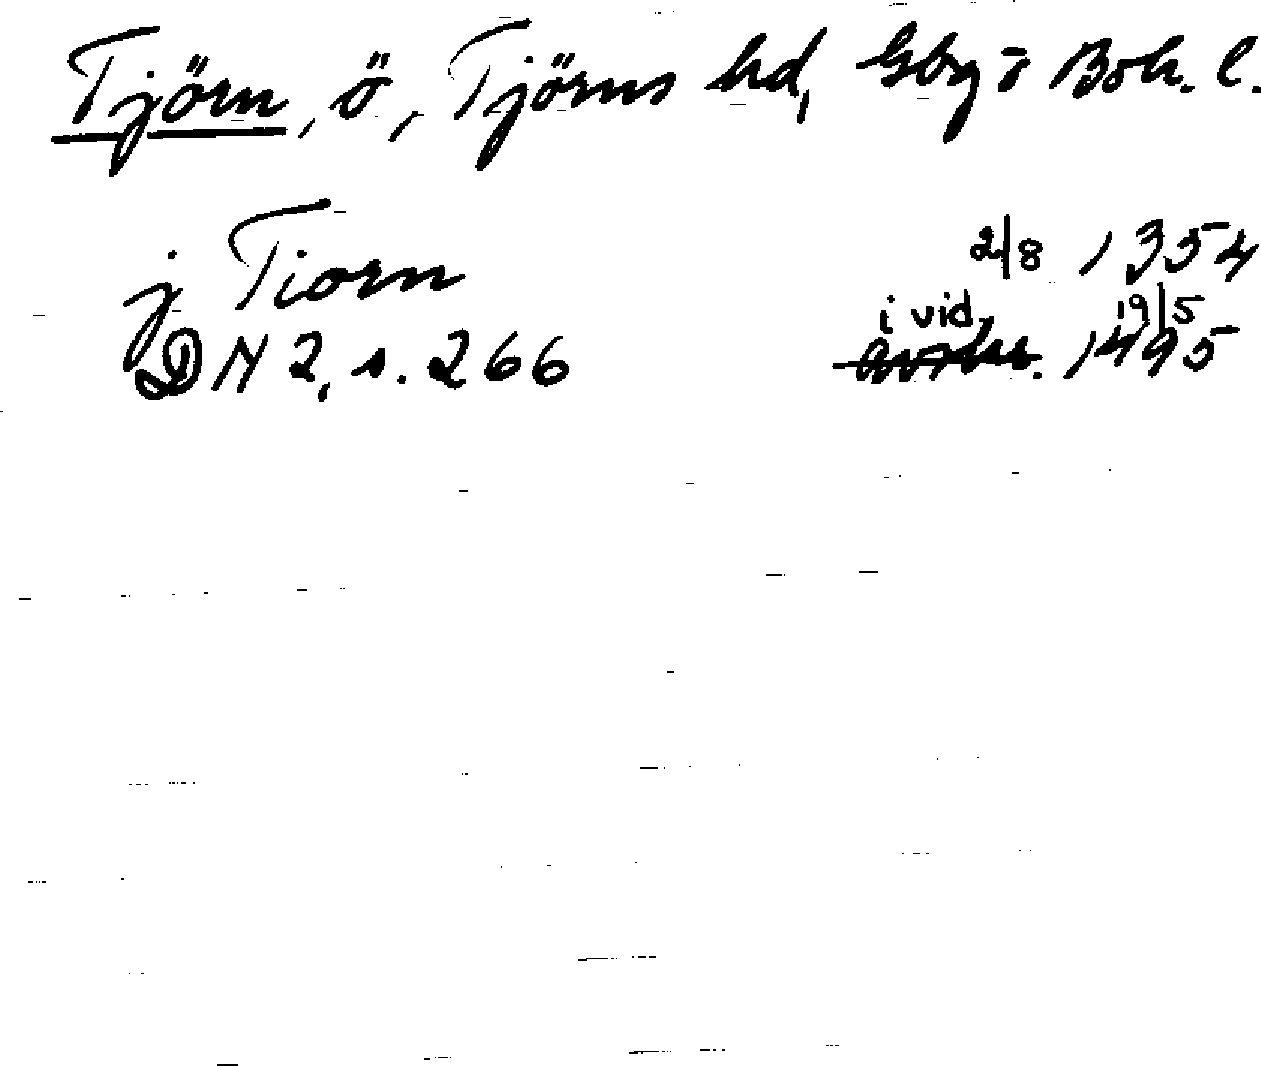 Tjörn, ö, Tjörns hd, Gbg o Boh. l.
j Tiorn 2/8 1354
i vid. 19/5
DN 2, s. 266 avskr. 1495